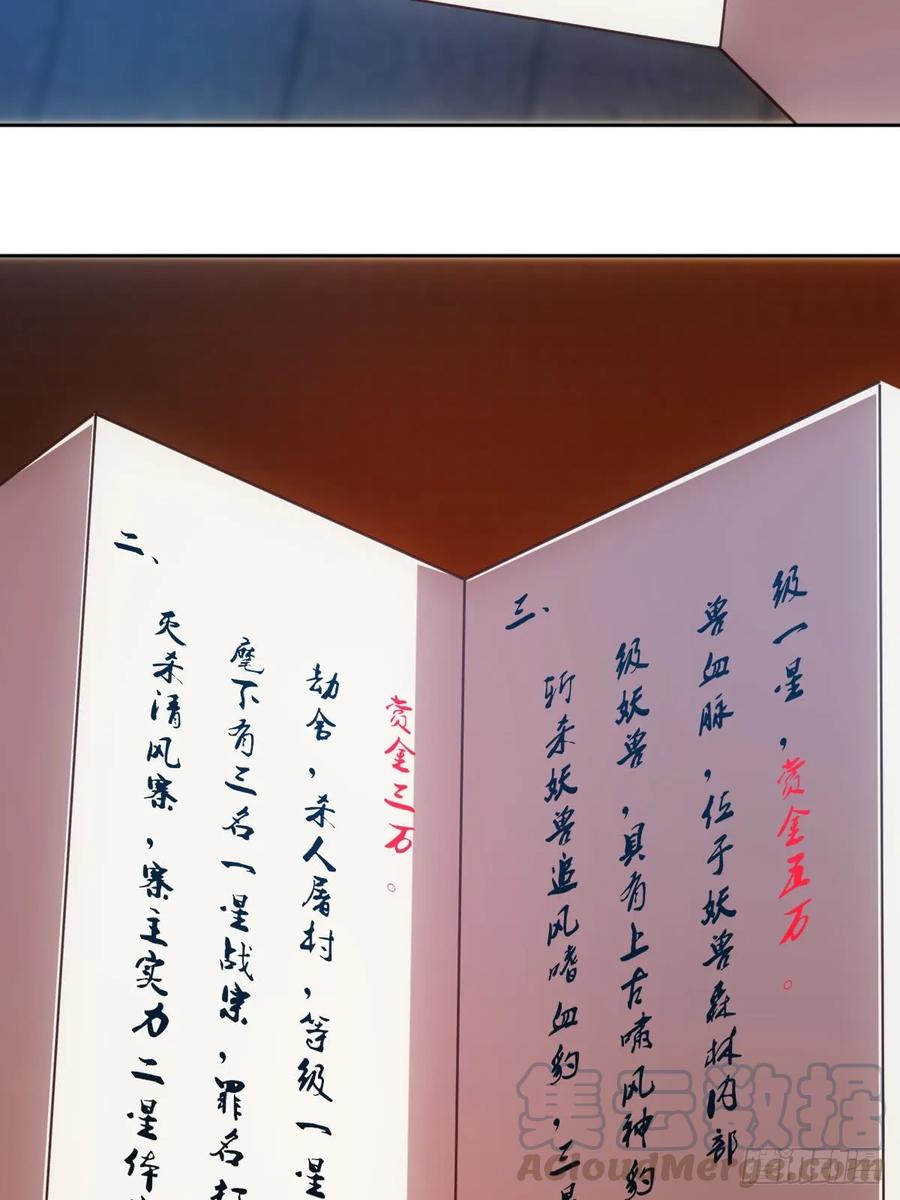 二、
灭杀清风寨，寨主实力二星体
麾下有三名一星战宗，罪名打
劫舍，杀人屠村，等级一星
赏金三万。
三、
斩杀妖兽追风嗜血豹，三星
级妖兽，具有上古啸风神豹
兽血脉，位于妖兽森林内部
级一星，赏金五万。
集云数据
AcloudMerge.com